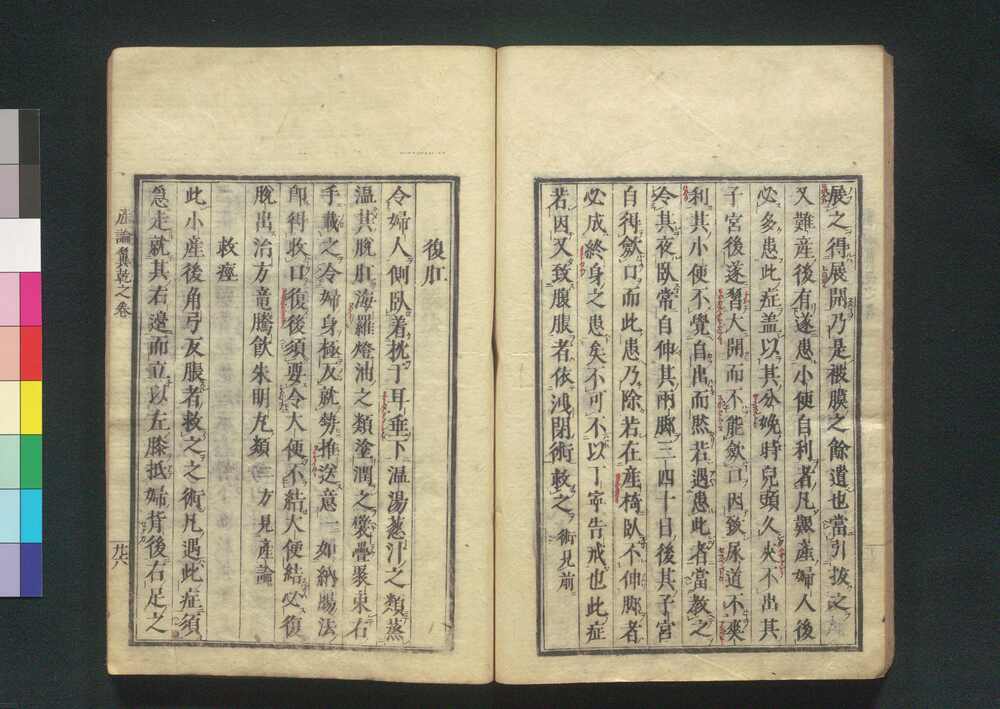 展之得展開乃是被膜之餘遺也當引拔之
又難産後有遂患小便自利者凡艱産婦人後
必多患此症盖以其分娩時兒頭久夾不出其
子宮後遂豁大開而不能歛口因致尿道不爽
利其小便不覺自出而然若遇患此者當教之
令其夜臥常自伸其兩脚三四十日後其子宮
自得歛口而此患乃除若在産椅臥不伸脚者
必成終身之患矣不可不以丁寧告戒也此症
若因又致腹脹者依鴻閉術救之 術見前
復肛
令婦人側臥着枕于耳垂下温湯葱汁之類蒸
温其脱肛海羅燈油之類塗潤之襞疊裂束右
手載之令婦身極反就勢推送意一如納腸法
即得收口復後須要令大便不結大便結必復
脱出治方竜騰飲朱明丸類 二方見産論
救痙
此小産後角弓反脹者救之之術凡遇此症須
急走就其右邊而立以左膝抵婦背後右足之
産論翼乾之卷
廿六